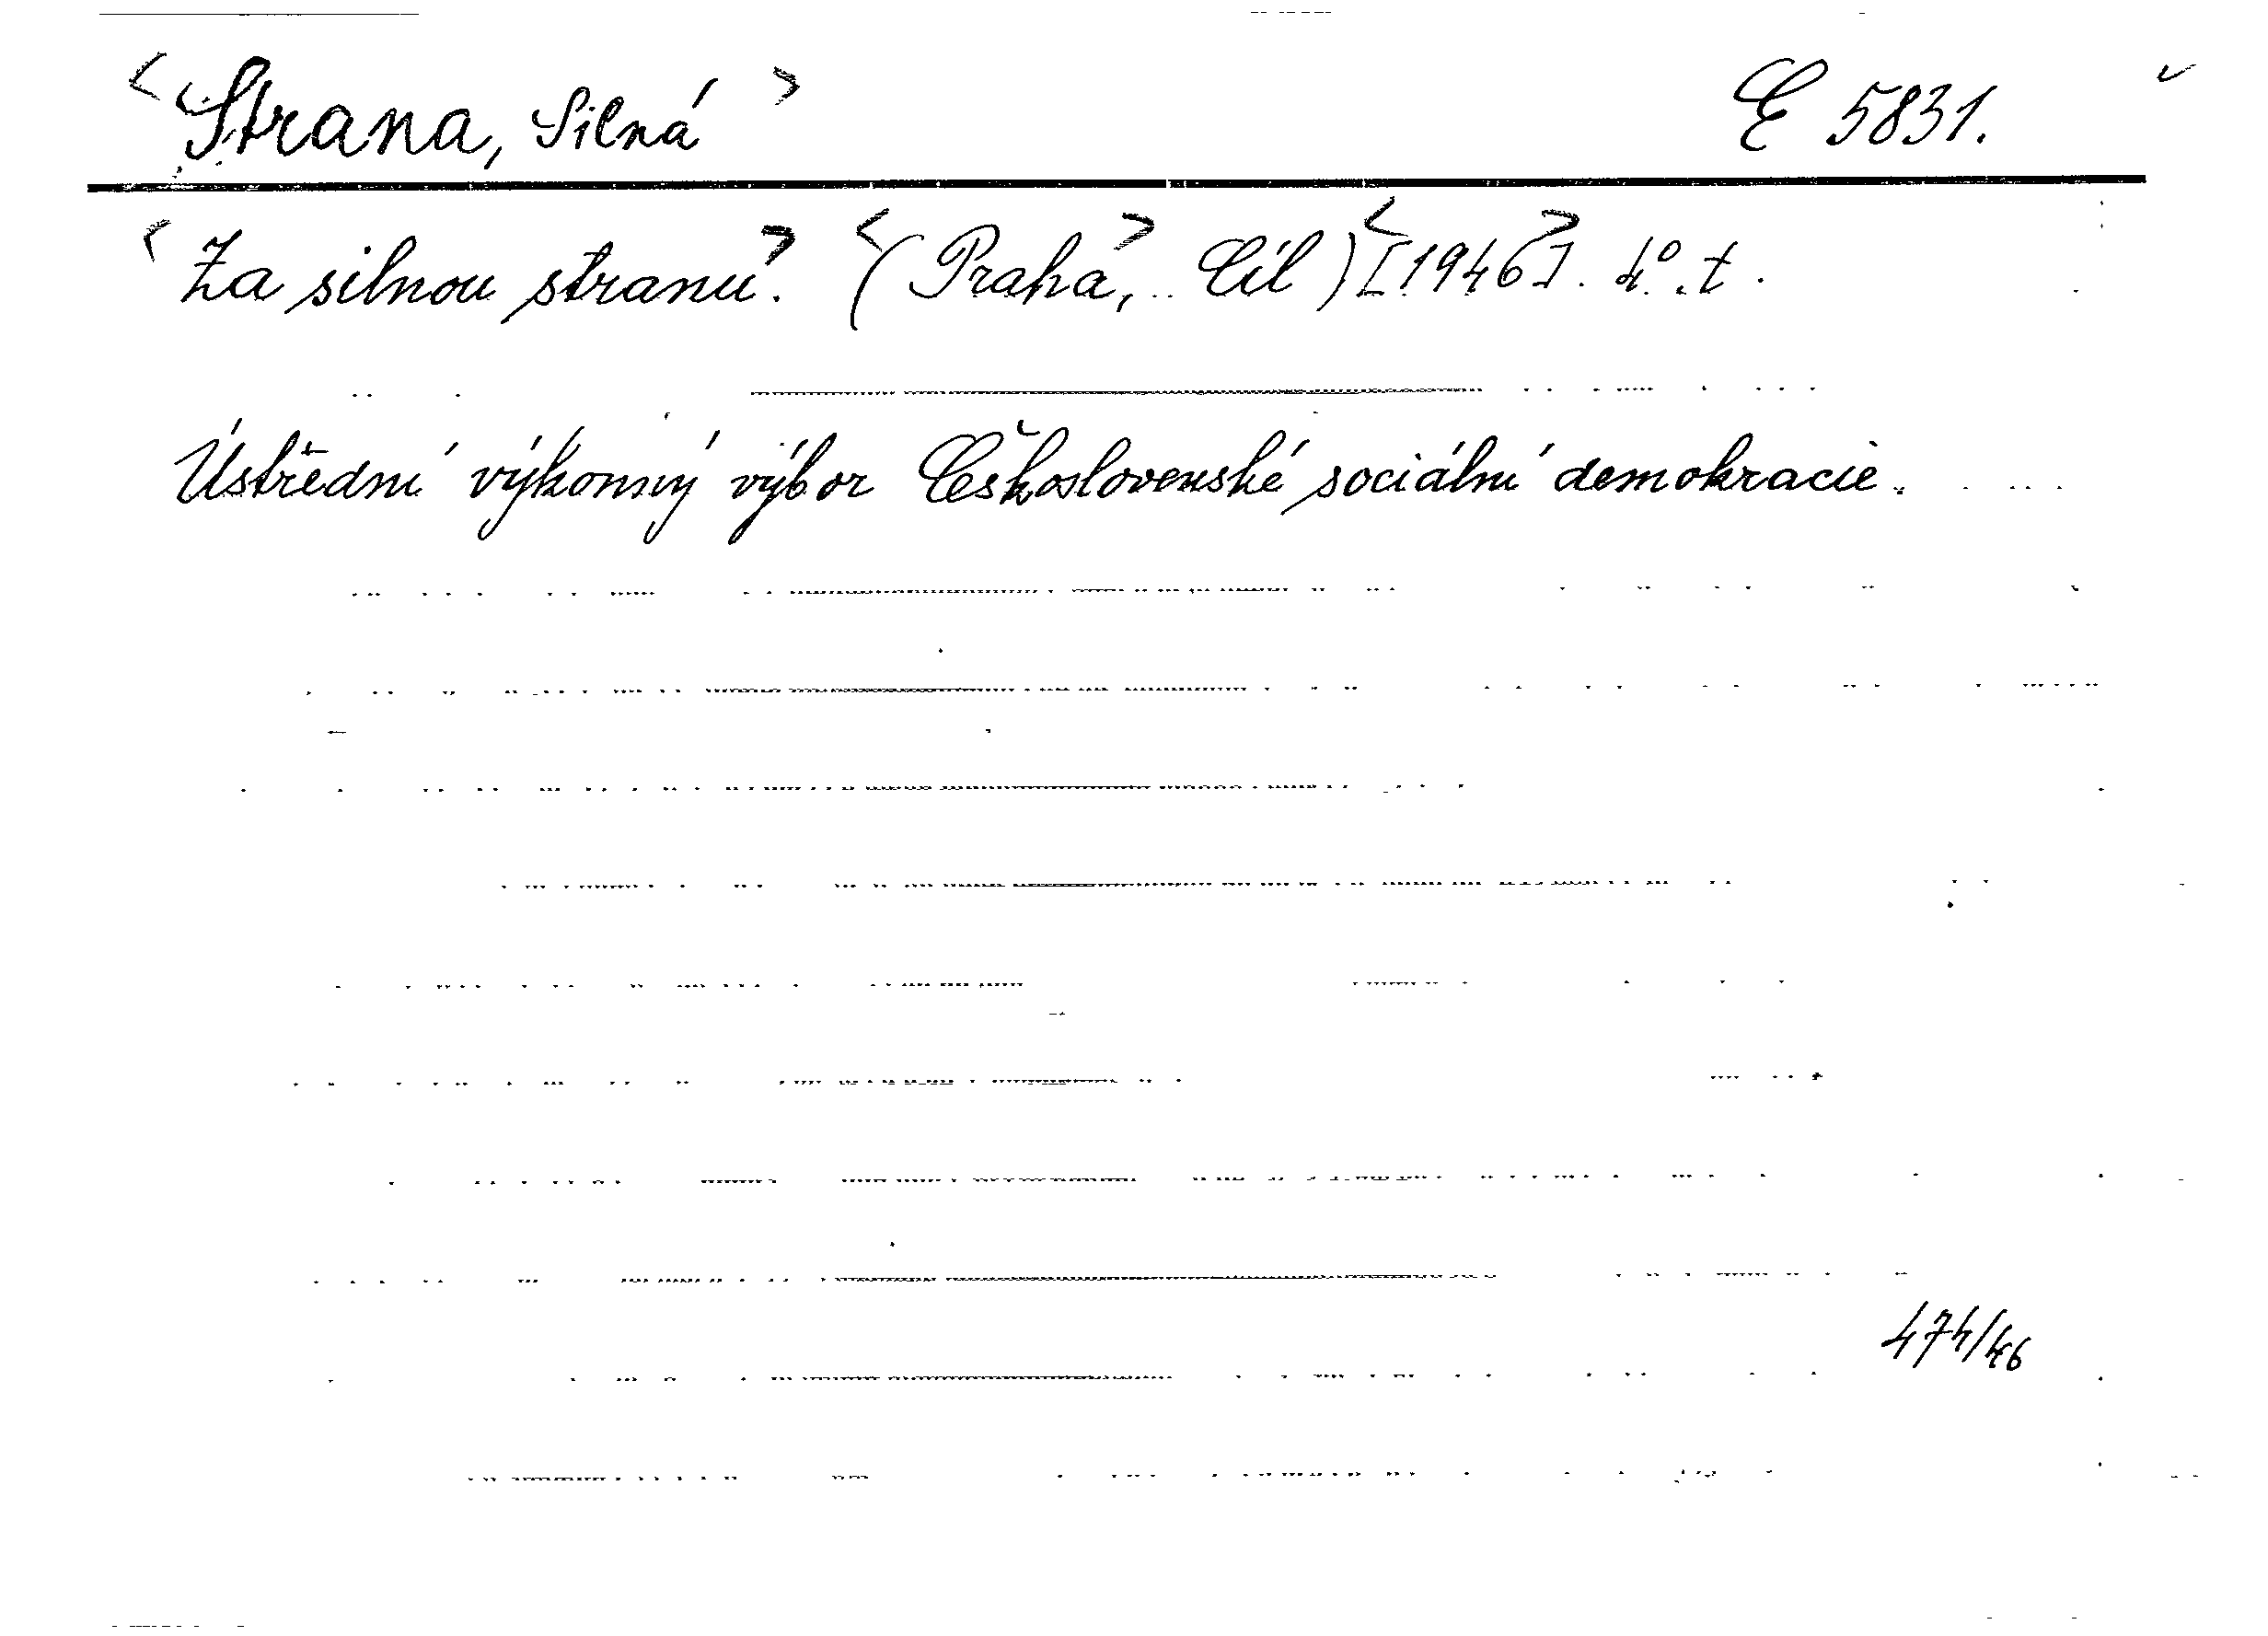 <Strana, Silná> E 5831.
<Za silnou stranu.> (<Praha,> Cíl) <[1946]>. 4°. t.
Ústřední výkonný výbor Československé sociální demokracie.
474/46